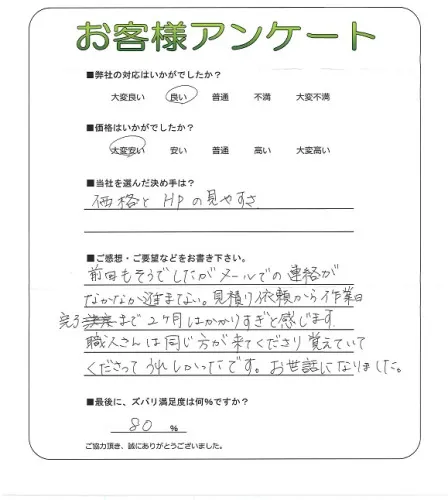 お客様アンケート
■弊社の対応はいかがでしたか?
大変良い 良い 普通 不満 大変不満
■価格はいかがでしたか?
大変安い 安い 普通 高い 大変高い
■当社を選んだ決め手は?
価格と HPの見やすさ
■ご感想・ご要望などをお書き下さい。
前回もそうでしたがメールでの連絡が
なかなか進まない。見積り依頼から作業日
完了まで2ヶ月はかかりすぎと感じます
職人さんは同じ方が来てくださり覚えていて
くださってうれしかったです。お世話になりました。
■最後に、ズバリ満足度は何%ですか?
80 %
ご協力頂き、誠にありがとうございました。